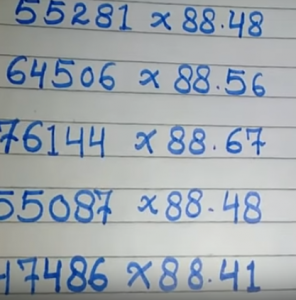 55281 x 88.48
64506 x 88.56
76144 x 88.67
55087 x 88.48
17486 x 88.41